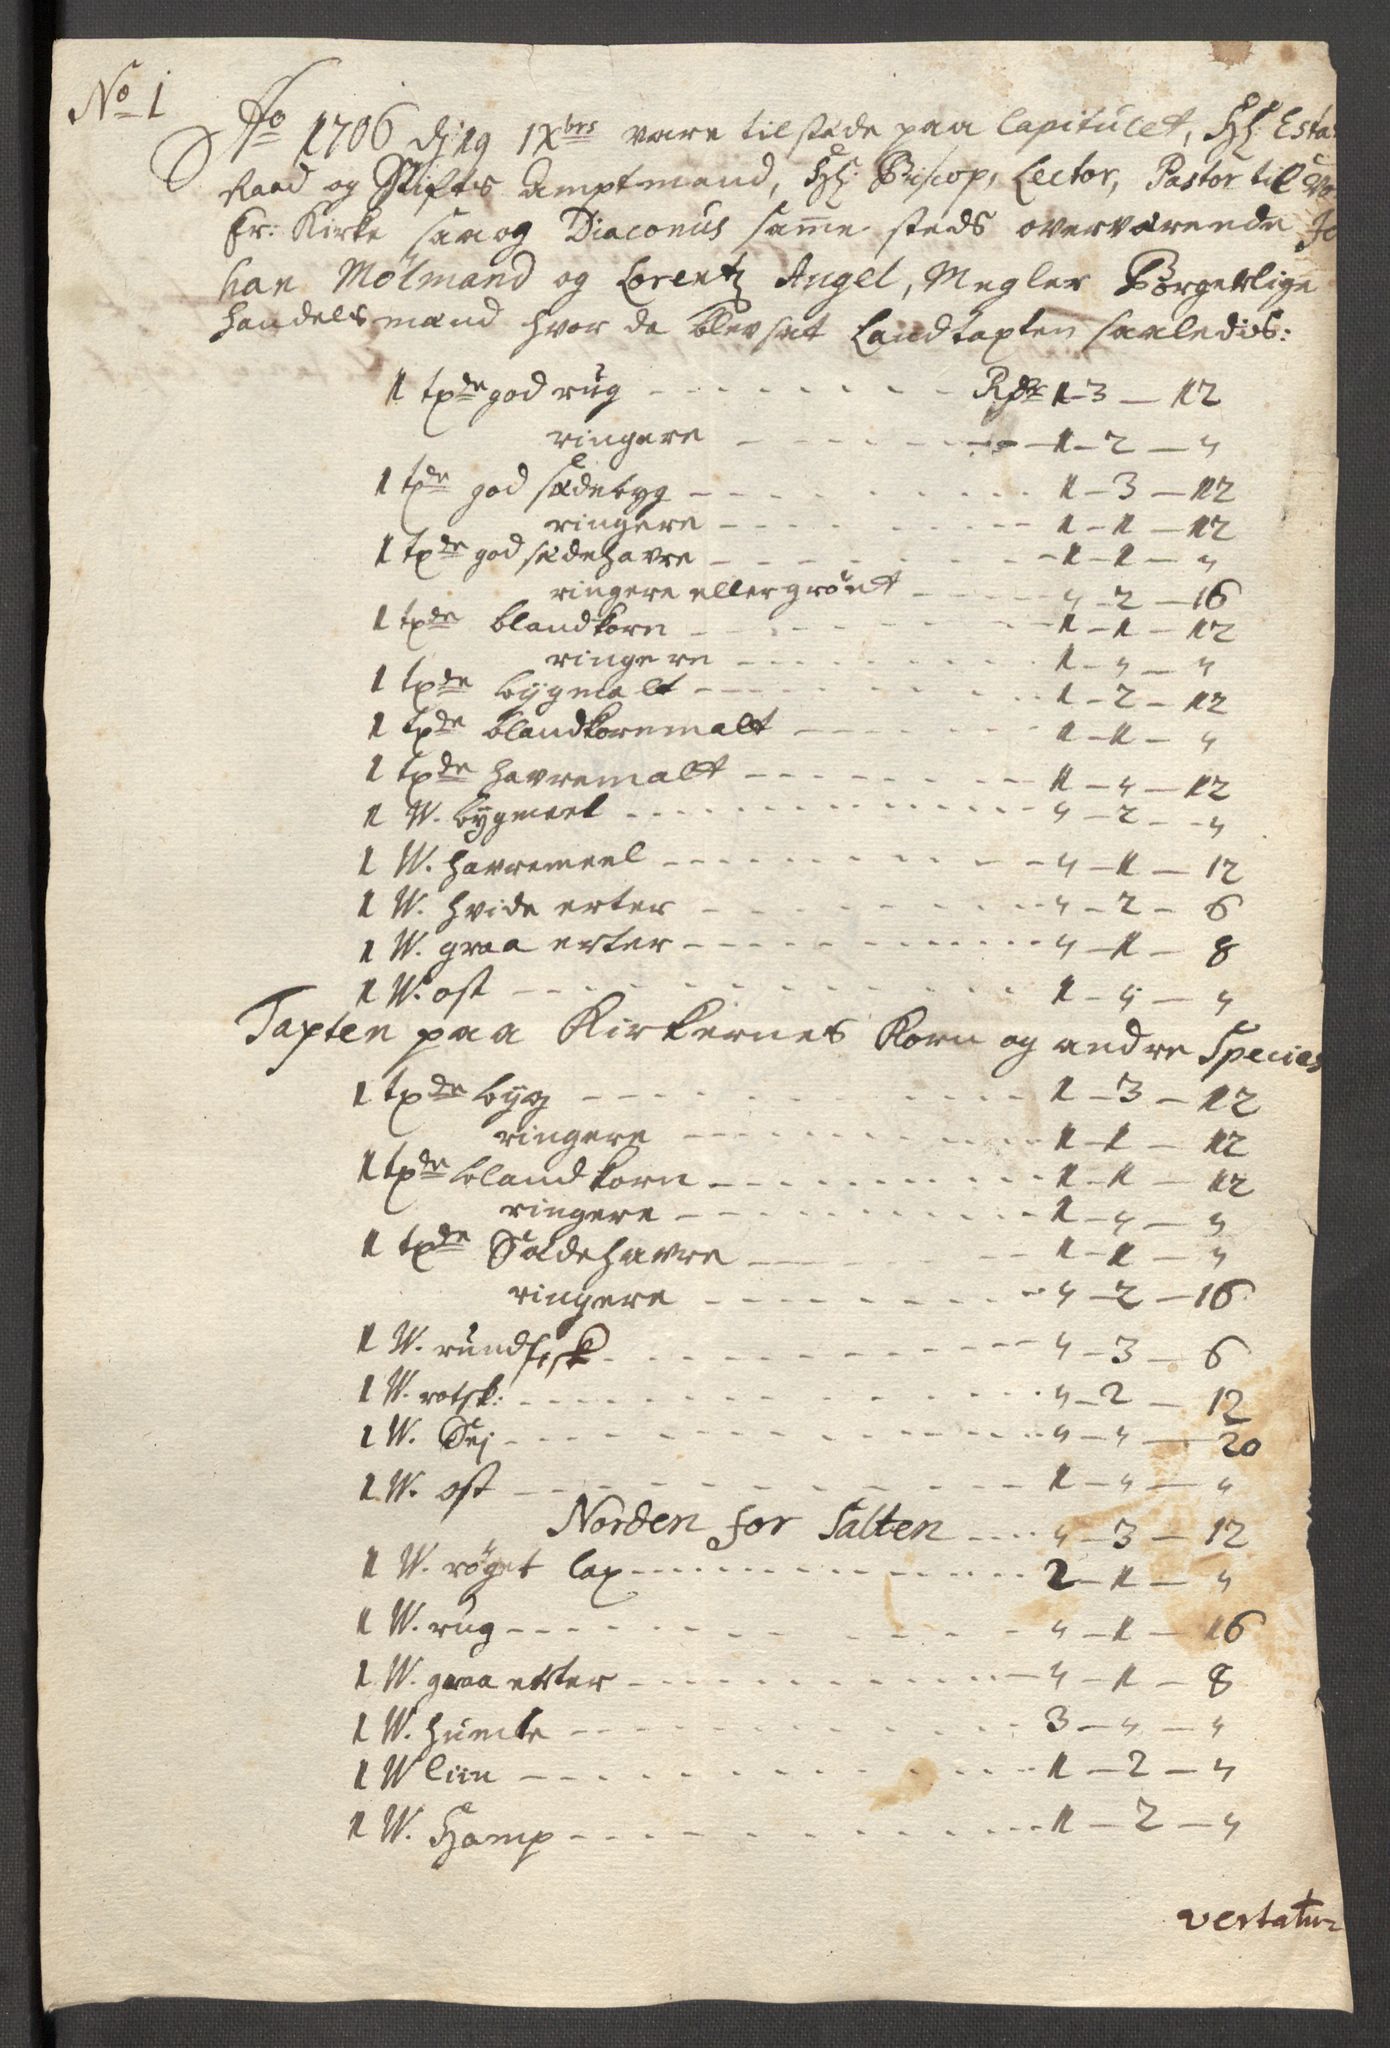 No 1
Ao 1706 dj 19 IXbrs vare tilstede paa Capitulet, Hl: Esta
Raad og Stifts Amptmand, Hl: Biscop, Lector, Pastor til Vo
Fr: Kirke saaog Diaconus samme steds overværende Jo
han Mølmand og Lorentz Angel, Megler Børgerlige
handelsmænd hvor da blev sat Landtaxten saaledis:
1 tpde god rug - - - Rdr 1 - 3 - 12
ringere - - - 1 - 2 - "
1 tpde god sædebyg - - - 1 - 3 - 12
ringere - - - 1 - 1 - 12
1 tpde god sædehavre - - - 1 - 1 - "
ringere eller grönt - - - " - 2 - 16
1 tpde blandkorn - - - 1 - 1 - 12
ringere - - - 1 - " - "
1 tpde bygmalt - - - 1 - 2 - 12
1 tpde blandkornmalt - - - 1 - 1 - "
1 tpde havremalt - - - 1 - " - 12
1 W. bygmeel - - - " - 2 - "
1 W. havremeel - - - " - 1 - 12
1 W. hvide erter - - - " - 2 - 6
1 W. graa erter - - - " - 1 - 8
1 W. ost - - - 1 - " - "
Taxten paa Kirkernes Korn og andre Species
1 tpde byg - - - 1 - 3 - 12
ringere - - - 1 - 1 - 12
1 tpde blandkorn - - - 1 - 1 - 12
ringere - - - 1 - " - "
1 tpde Sædehavre - - - 1 - 1 - "
ringere - - - " - 2 - 16
1 W. rundfisk - - - " - 3 - 6
1 W. rotsk: - - - " - 2 - 12
1 W. Sej - - - " - " - 20
1 W. ost - - - 1 - " - "
Norden for Salten - - - " - 3 - 12
1 W. röget lax - - - 2 - 1 - "
1 W. rug - - - " - 1 - 16
1 W. graa erter - - - " - 1 - 8
1 W. humle - - - 3 - " - "
1 W liin - - - 1 - 2 - "
1 W. Hamp - - - 1 - 2 - "
vertatur